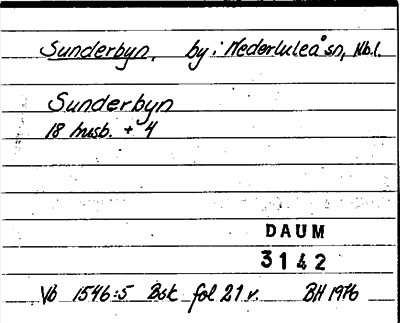 Sunderbyn, by i Nederluleå sn, Nb.l.
Sunderbyn
18 husb. + 4
DAUM
3142
Vb 1546:5 Bsk fol 21 v. BH 1976